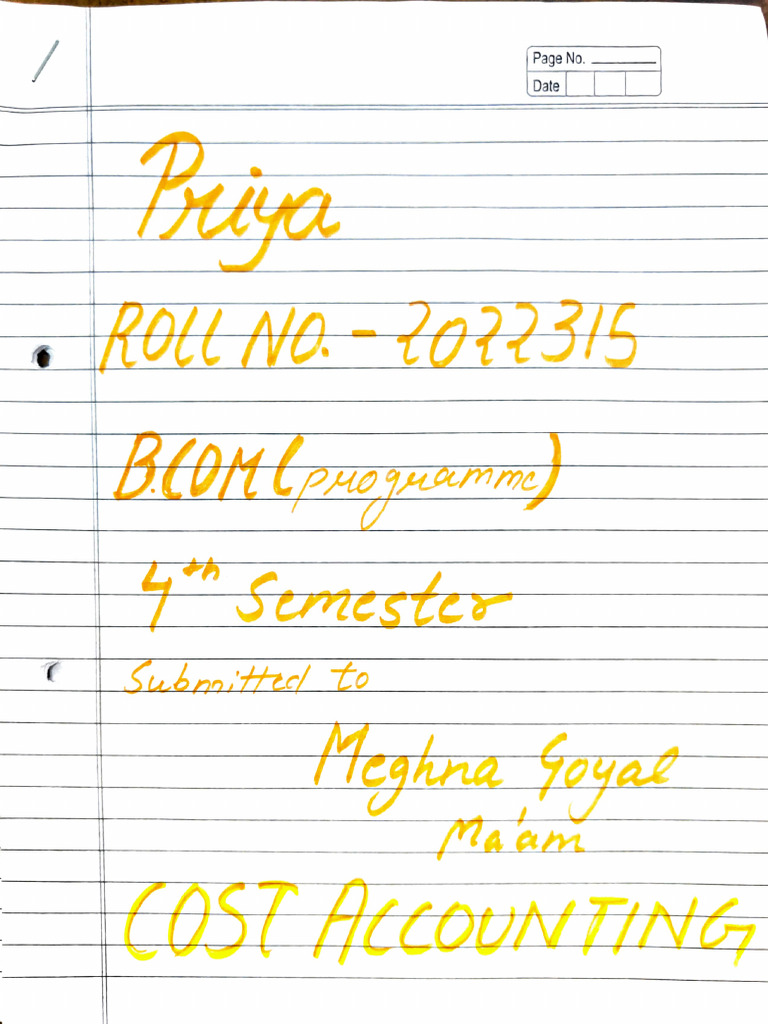 Page No.
Date
Priya
ROLL NO. - 2022315
B.COM (programme)
4th Semester
Submitted to
Meghna Goyal
Ma'am
COST ACCOUNTING